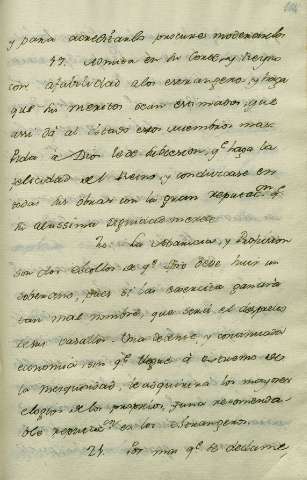 y para acreditarlos procure moderarlos
19. Admita en su Corte, y Reyno
con afabilidad a los extrangeros, y haga
que sus meritos sean estimados, que
assi dá al Estado esos miembros mas.
Pida a Dios le dé subcesion, qᵉ haga la
felicidad del Reino, y conduzcase en
todas sus obras con la gran reputacᵒⁿ qᵉ
su altissima dignidad merece.
20. La Abaricia, y Profusion
son dos escollos de qᵉ deve huir un
soberano, pues si las exercita ganará
tan mal nombre, que será el desprecio
de sus vasallos. Una decente, y continuada
economia sin qᵉ llegue á extremo de
la mezquindad, le adquirirá los mayores
elogios de los propios, y una recomenda-
ble reputacᵒⁿ en los extrangeros.
21. Por mas qᵉ se declame